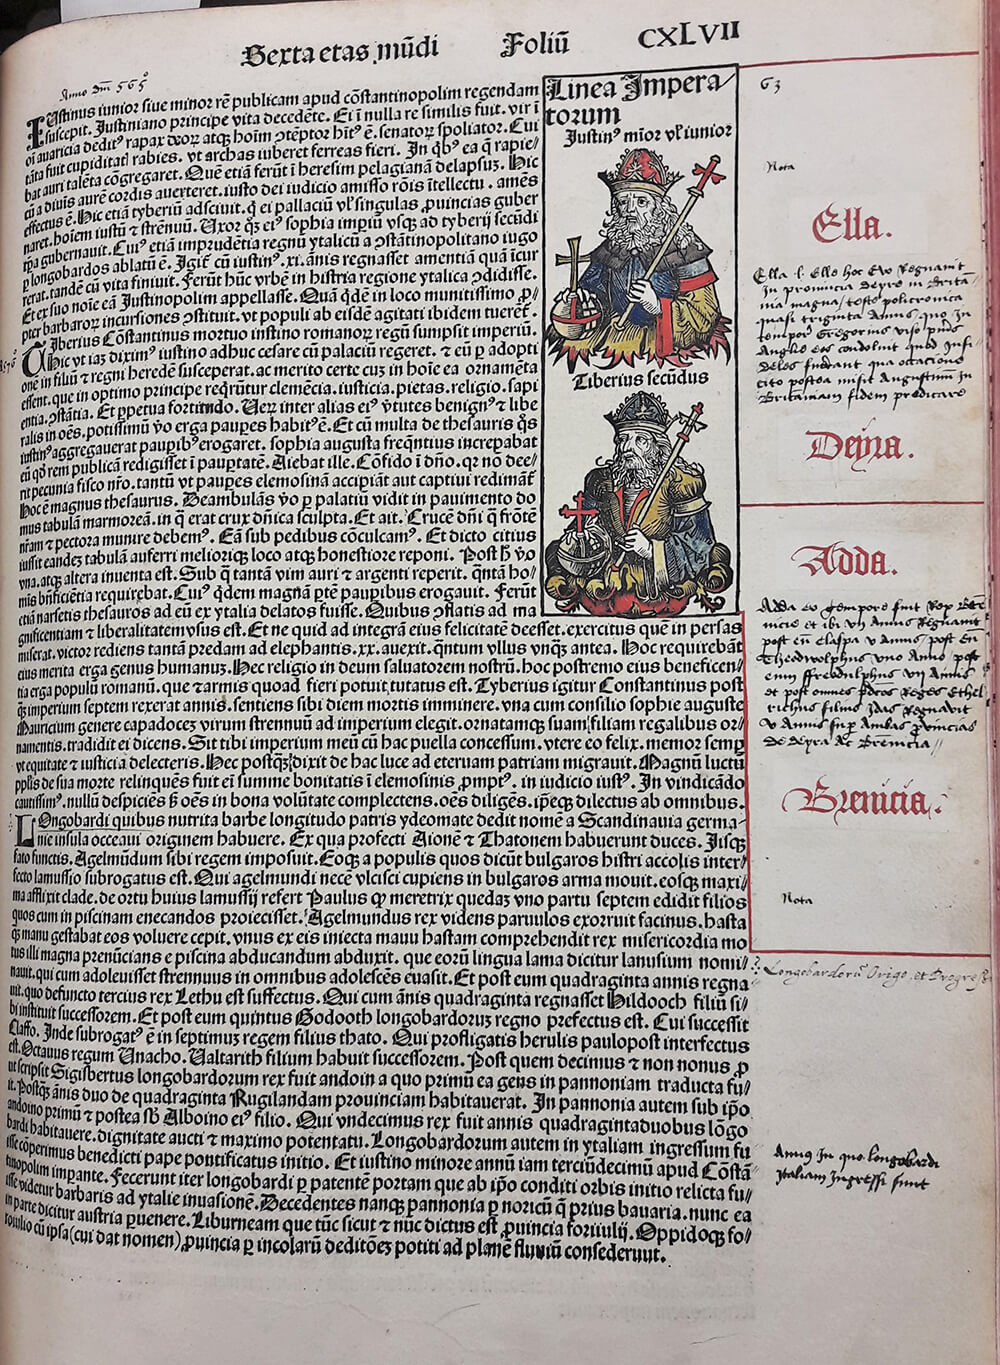 Sexta etas mūdi Foliū CXLVII
Anno Dm̄ 565°
Iustinus iunior siue minor rē publicam apud cōstantinopolim regendam
suscepit. Justiniano principe vita decedēte. Ei ī nulla re similis fuit. vir ī
oī auaricia deditꝰ rapax
tāta fuit cupiditatꝭ rabies. vt archas iuberet ferreas fieri. In qͥbꝰ ea q̄ rapie⸗
bat auri talēta cōgregaret. Quē etiā ferūt ī heresim pelagianā delapsuꝫ. Hic
cū a diuīs aurē cordis auerteret. iusto dei iudicio amisso rōis ītellectu. amēs
effectus ē. Hic etiā tyberiū adsciuit. q̄ ei pallaciū vł singulas ꝓuincias guber
naret. hoīem iustū ⁊ strēnuū. Uxor qꝫ eiꝰ sophia imꝑiū vsqꝫ ad tyberij secūdi
tꝑa gubernauit. Cuiꝰ etiā imprudētia regnū ytalicū a ꝯstātinopolitano iugo
ꝑ longobardos ablatū ē. Igit̄ cū iustinꝰ. xi. ānis regnasset amentiā quā īcur
rerat. tandē cū vita finiuit. Ferūt hūc vrbē in histria regione ytalica ꝯdidisse.
Et ex suo noīe eā Justinopolim appellasse. Quā qͥdē in loco munitissimo ꝓ⸗
pter barbaroꝝ incursiones ꝯstituit. vt populi ab eisdē agitati ibidem tuerēt̄.
1576°
Tiberius Constantinus mortuo iustino romanoꝝ regū sumpsit imperiū.
Hic vt iaꝫ diximꝰ iustino adhuc cesare cū palaciū regeret. ⁊ eū ꝑ adopti
onē in filiū ⁊ regni heredē susceperat. ac merito certe cuꝫ in hoīe ea ornamēta
essent. que in optimo principe reqͥrūtur clemēcia. iusticia. pietas. religio. sapi
entia. ꝯstātia. Et ꝑpetua fortitudo. Ueꝝ inter alias eiꝰ v̓tutes benignꝰ ⁊ libe
ralis in oēs. potissimū v̓o erga pauꝑes habitꝰ ē. Et cū multa de thesauris qͦs
iustinꝰ aggregauerat pauꝑibꝰ erogaret. sophia augusta freqͣntius increpabat
eū qͦd rem publicā redigisset ī pauꝑtatē. Aiebat ille. Cōfido ī dn̄o. qꝛ nō dee⸗
rit pecunia fisco nr̄o. tantū vt pauꝑes elemosinā accipiāt aut captiui redimāt̄
hoc ē magnus thesaurus. Deambulās v̓o ꝑ palatiū vidit in pauimento do
mus tabulā marmoreā. in q̄ erat crux dn̄ica sculpta. Et ait. Crucē dn̄i q̄ frōtē
nr̄am ⁊ pectora munire debemꝰ. Eā sub pedibus cōculcamꝰ. Et dicto citius
iussit eandeꝫ tabulā auferri melioriqꝫ loco atqꝫ honestiore reponi. Post h̓ v̓o
vna. atqꝫ altera inuenta est. Sub q̄ tantā vim auri ⁊ argenti reperit. qͣntā ho⸗
mīs bn̄ficiētia requirebat. Cuiꝰ qͥdem magnā ꝑtē pauꝑibus erogauit. Ferūt
etiā narsetis thesauros ad eū ex ytalia delatos fuisse. Quibus ꝯstatis ad ma
gnificentiam ⁊ liberalitatem vsus est. Et ne quid ad integrā eius felicitatē deesset. exercitus quē in persas
miserat. victor rediens tantā predam ad elephantis. xx. auexit. qͣntum vllus vnqꝫ antea. Hoc requirebāt
eius merita erga genus humanuꝫ. Hec religio in deum saluatorem nostrū. hoc postremo eius beneficen⸗
tia erga populū romanū. que ⁊ armis quoad fieri potuit. tutatus est. Tyberius igitur Constantinus post
qꝫ imperium septem rexerat annis. sentiens sibi diem mortis imminere. vna cum consilio sophie auguste
Mauricium genere capadoceꝫ virum strennuū ad imperium elegit. ornatamqꝫ suam filiam regalibus or⸗
namentis. tradidit ei dicens. Sit tibi imperium meū cū hac puella concessum. vtere eo felix. memor semꝑ
vt equitate ⁊ iusticia delecteris. Hec postqꝫ dixit de hac luce ad eternam patriam migrauit. Magnū luctū
pplis de sua morte relinquēs fuit eī summe bonitatis ī elemosinis ꝓmptꝰ. in iudicio iustꝰ. In vindicādo
cautissimꝰ. nullū despiciēs ꝫ oēs in bona volūtate complectens. oēs diligēs. ip̄eqꝫ dilectus ab omnibus.
Longobardi quibus nutrita barbe longitudo patris ydeomate dedit nomē a Scandinauia germa⸗
nie insula occeaui originem habuere. Ex qua profecti Aionē ⁊ Thatonem habuerunt duces. Jisqꝫ
fato functis. Agelmūdum sibi regem imposuit. Eoqꝫ a populis quos dicūt bulgaros histri accolis inter⸗
fecto lamussio subrogatus est. Qui agelmundi necē vlcisci cupiens in bulgaros arma mouit. eosqꝫ maxi⸗
ma afflixit clade. de ortu huius lamussij refert Paulus qꝫ meretrix quedaꝫ vno partu septem edidit filios
quos cum in piscinam enecandos proiecisset. Agelmundus rex videns paruulos exorruit facinus. hasta
qꝫ manu gestabat eos voluere cepit. vnus ex eis iniecta mauu hastam comprehendit rex misericordia mo
tus illi magna prenūcians e piscina abducandum abduxit. que eorū lingua lama dicitur lamusium nomi⸗
nauit. qui cum adoleuisset strennuus in omnibus adolescēs euasit. Et post eum quadraginta annis regna
uit. quo defuncto tercius rex Lethu est suffectus. Qui cum ānis quadraginta regnasset Hildooch filiū si⸗
bi instituit successorem. Et post eum quintus Godooth longobardoruꝫ regno prefectus est. Cui successit
Claffo. Inde subrogatꝰ ē in septimuꝫ regem filius thato. Qui profligatis herulis paulopost interfectus
est. Octauus regum Unacho. Ualtarith filium habuit successorem. Post quem decimus ⁊ non nonus ꝓ
ut scripsit Sigisbertus longobardorum rex fuit andoin a quo primū ea gens in pannoniam traducta fu⸗
it. Postqꝫ ānis duo de quadraginta Rugilandam prouinciam habitauerat. In pannonia autem sub ip̄o
andoino primū ⁊ postea sb̓ Alboino ei꜄ filio. Qui vndecimus rex fuit annis quadragintaduobus lōgo
bardi habitauere. dignitate aucti ⁊ maximo potentatu. Longobardorum autem in ytaliam ingressum fu
isse cōperimus benedicti pape pontificatus initio. Et iustino minore annū iam terciūdecimū apud Cōstā⸗
tinopolim impante. Fecerunt iter longobardi ꝑ patentē portam que ab ip̄o conditi orbis initio relicta fu⸗
isse videtur barbaris ad ytalie inuasionē. Decedentes nanqꝫ pannonia ꝑ noricū q̄ prius bauaria. nunc ea
in parte dicitur austria ꝑuenere. Liburneam que tūc sicut ⁊ nūc dictus est ꝓuincia foriiulij. Oppidoqꝫ fo⸗
roiulio cū ipsa (cui dat nomen) ꝓuincia ꝑ incolarū deditōeꝫ potiti ad planē fluuiū consederuut.
Linea Impera⸗
torum
Justinꝰ mīor vł iunior
Tiberius secūdus
63
Nota
Ella.
Ella .l. Elle hoc Evo Regnauit
In prouincia deyre in Brita⸗
nia magna/ teste policronica
quasi triginta Annis quo in
tempore Gregorius viso pueris
Anglie eos condoluit quod Infi⸗
deles fuerant qua occacione
cito postea misit Augustinum in
Britāniam fidem predicare
Deyra.
Adda.
Adda eo tempore fuit Rex Bre⸗
nicie et ibi vij Annis Regnauit
post eū Claspa v Annis post eū
Theodwolphus vno Anno/ post
eum ffreodulphus vij Annis
et post omnes p̄dcos Reges Ethel
richus filius Idas Regnavit
v Annis sup̄ Ambas ꝓvincias
de deyra Ac Brenicia//
Brenicia.
Nota
Longobardorū Origo, et Progress
Annus In quo longobardi
Italiam Ingressi sunt